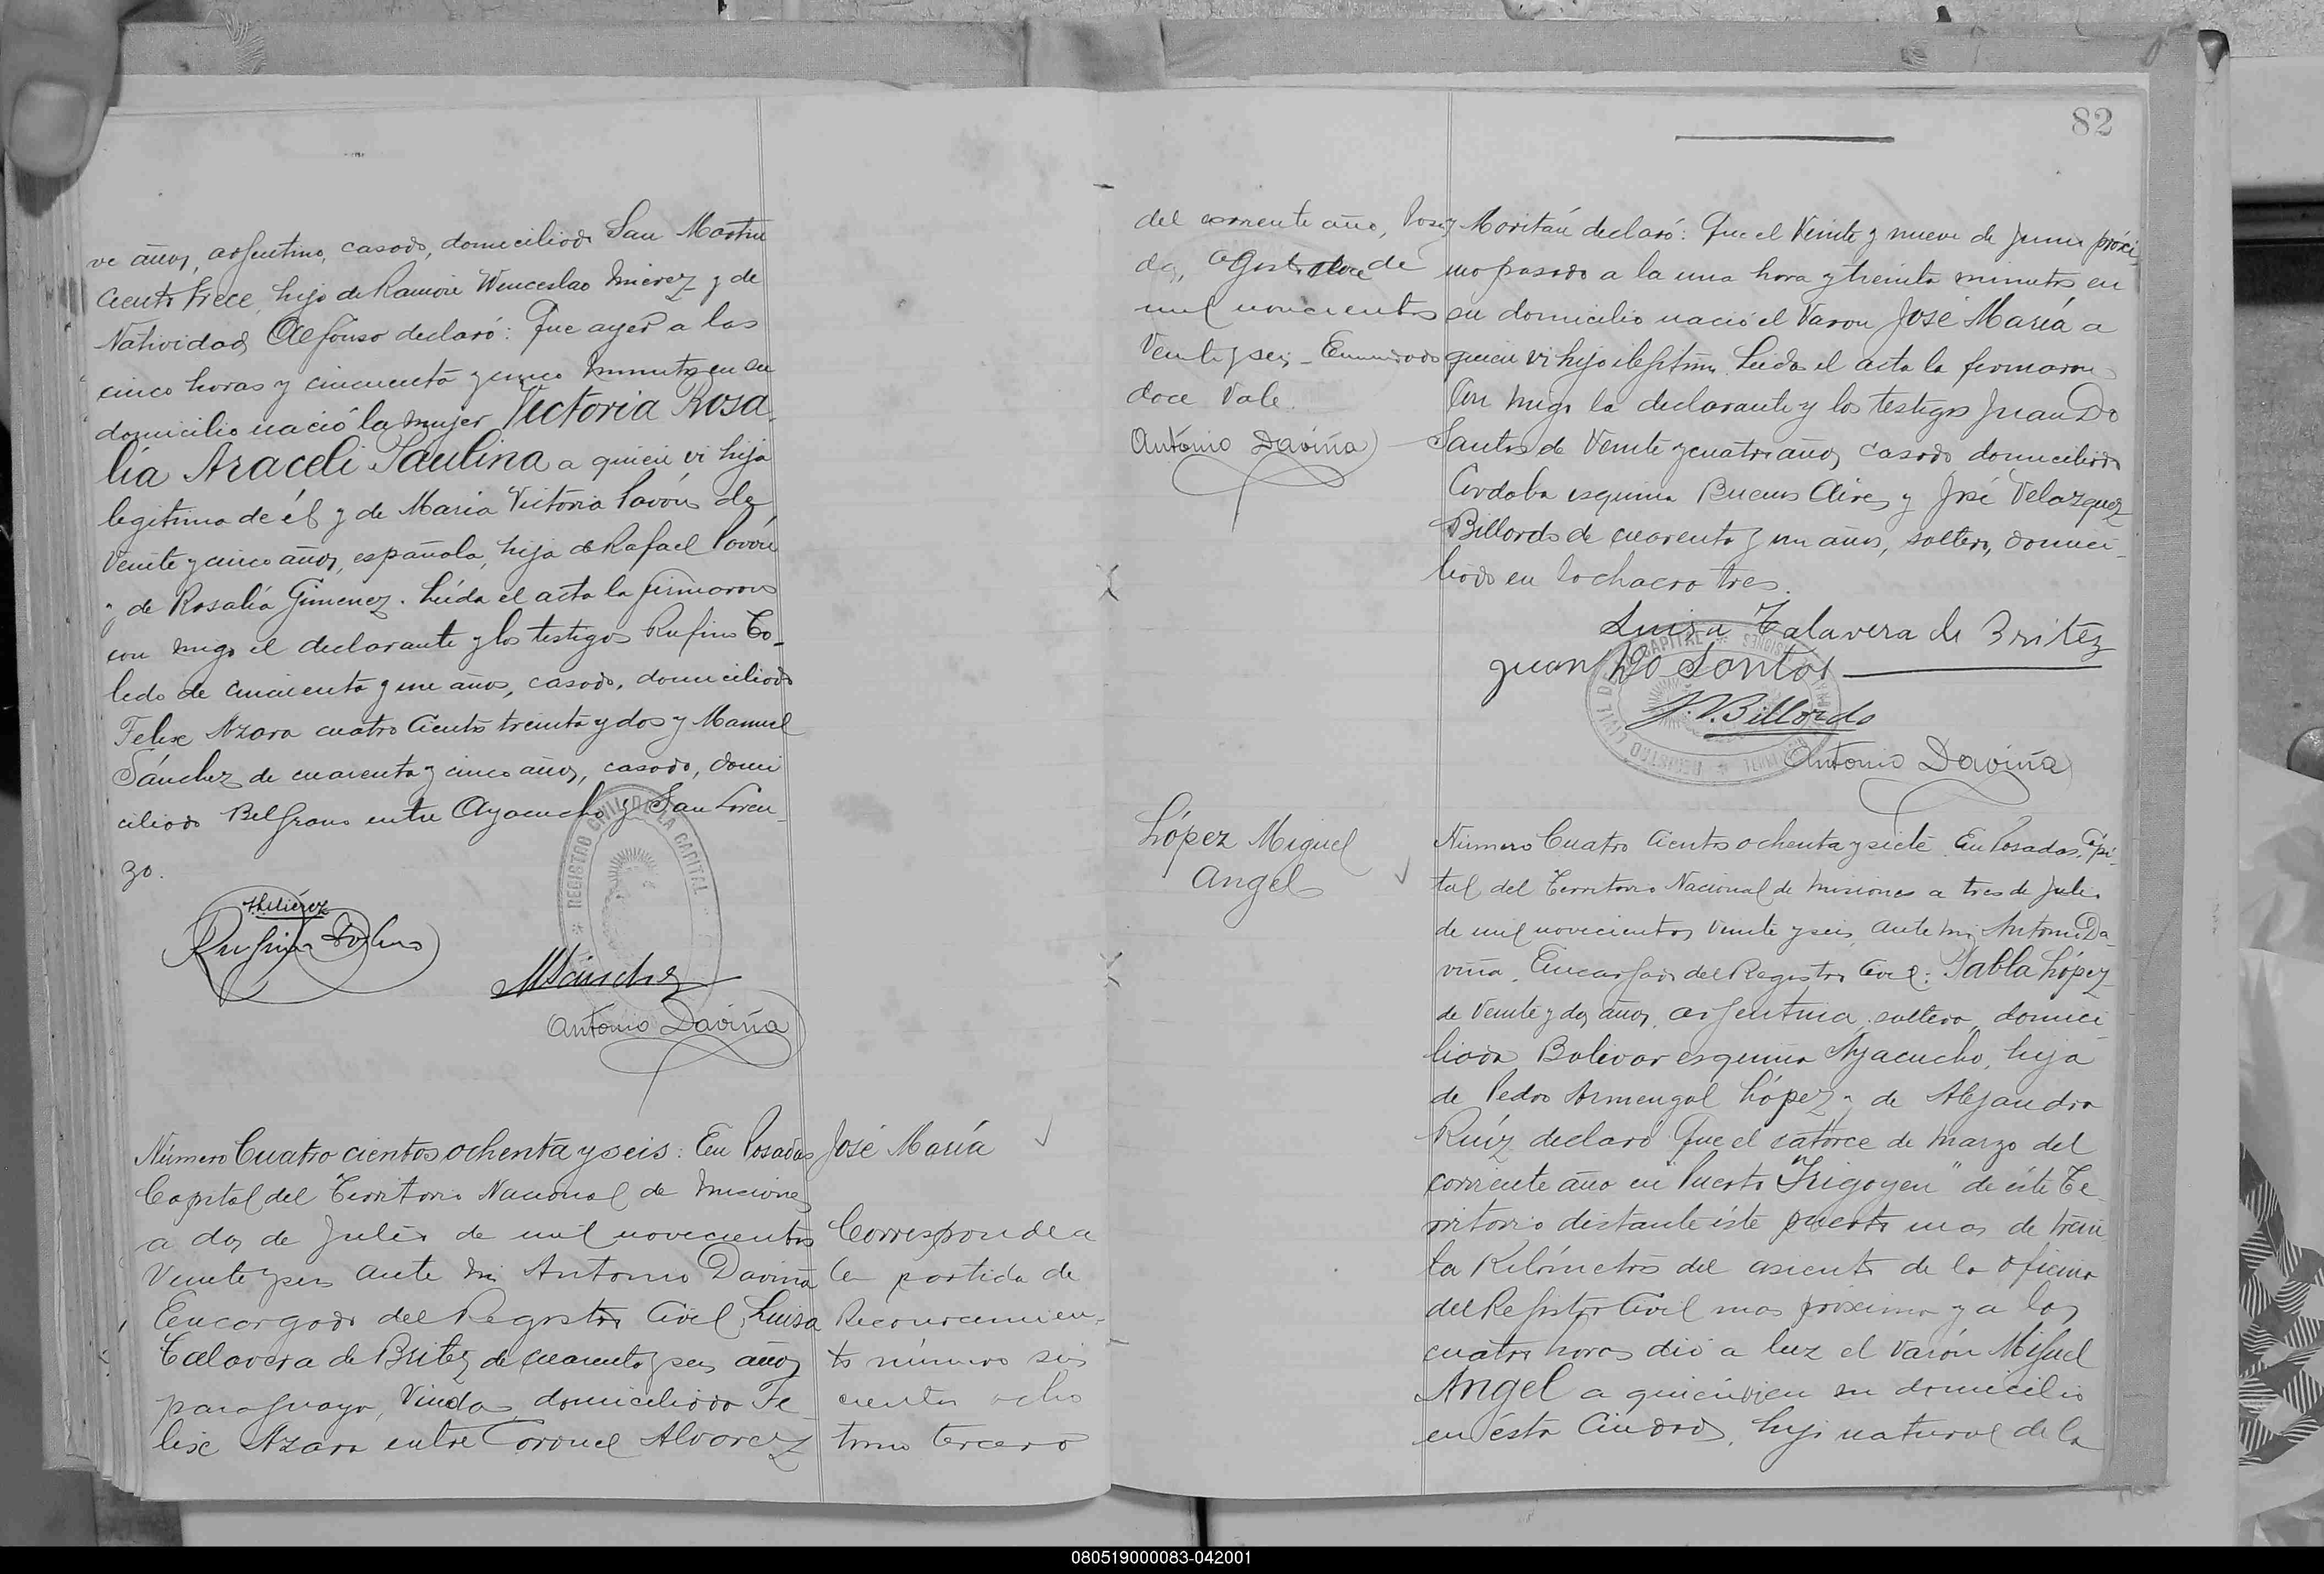 ve años, argentino, casado, domiciliado San Martin
ciento trece, hijo de Ramón Wenceslao Mierez y de
Natividad Alfonso declaró: Que ayer a las
cinco horas y cincuenta y cinco minutos en su
domicilio nació la mujer Victoria Rosa
lia Araceli Paulina a quien vi hija
legitima de él y de Maria Victoria Pavón de
Veinte y cinco años, española, hija de Rafael Pavón
y de Rosalia Gimenez. Leida el acta la firmaron
con migo el declarante y los testigos Rufino To-
ledo de cincuenta y un años, casado, domiciliado
Felix Azara cuatro cientos treinta y dos y Manuel
Sánchez de cuarenta y cinco años, casado, domi
ciliado Belgrano entre Ayacucho y San Loren-
zo.
REGISTRO CIVIL DE LA CAPITAL
MSánchez
Antonio Daviña
Número Cuatro cientos ochenta y seis: En Posadas
Capital del Territorio Nacional de Misiones
a dos de Julio de mil novecientos
Veinte y seis ante mi Antonio Daviña
Encargado del Registro Civil, Luisa
Talavera de Britez de cuarenta y seis años
paraguaya, Viuda, domiciliada Fe-
lix Azara entre Coronel Alvarez
José María
Corresponde a
la partida de
Reconocimien-
to número seis
cientos ocho
tomo tercero
82
del corriente año, Posa
das, Agosto doce de
mil novecientos
Veinte y seis - Enmendado
doce Vale.
Antonio Daviña
y Moritán declaró: Que el Veinte y nueve de Junio próxi-
mo pasado a la una hora y treinta minutos en
su domicilio nació el Varon José María a
quien vi hijo ilegítimo. Leida el acta la firmaron
con migo la declarante y los testigos Juan Do
Santos de Veinte y cuatro años, casado domiciliado
Cordoba esquina Buenos Aires y José Velazquez
Billordo de cuarenta y un años, soltero, domici-
liado en la chacra tres.
Luisa Talavera de Britez
Juan Do Santos
J. V. Billordo
Antonio Daviña
López Miguel
Angel
Número Cuatro cientos ochenta y siete. En Posadas, Capi-
tal del Territorio Nacional de Misiones a tres de Julio
de mil novecientos veinte y seis, ante mi Antonio Da-
viña, Encargado del Registro Civil: Pabla López
de Veinte y dos años, argentina, soltera, domici
liada Bolivar esquina Ayacucho, hija
de Pedro Armengol López y de Alejandra
Ruíz declaró Que el catorce de marzo del
corriente año en Puerto "Irigoyen" de éste Te-
rritorio distante éste puerto mas de trein
ta Kilómetros del asiento de la oficina
del Registro Civil mas proximo y a las
cuatro horas dió a luz el Varón Miguel
Angel a quien vi en su domicilio
en ésta Ciudad, hijo natural de la
080519000083-042001